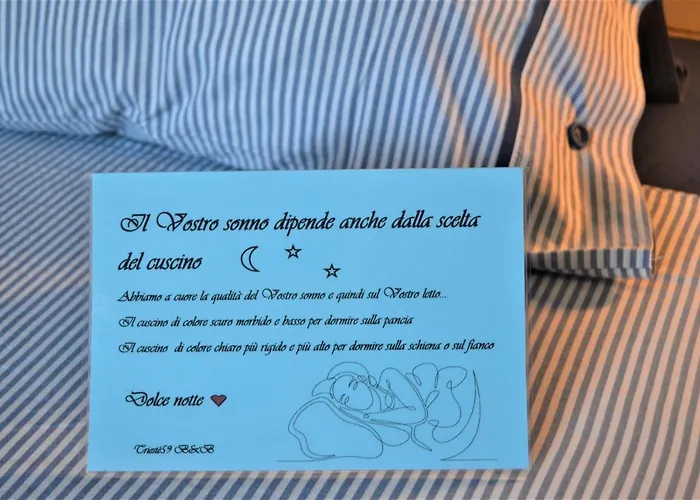 Il Vostro sonno dipende anche dalla scelta
del cuscino
Abbiamo a cuore la qualità del Vostro sonno e quindi sul Vostro letto...
Il cuscino di colore scuro morbido e basso per dormire sulla pancia
Il cuscino di colore chiaro più rigido e più alto per dormire sulla schiena o sul fianco
Dolce notte
Trieste59 B&B